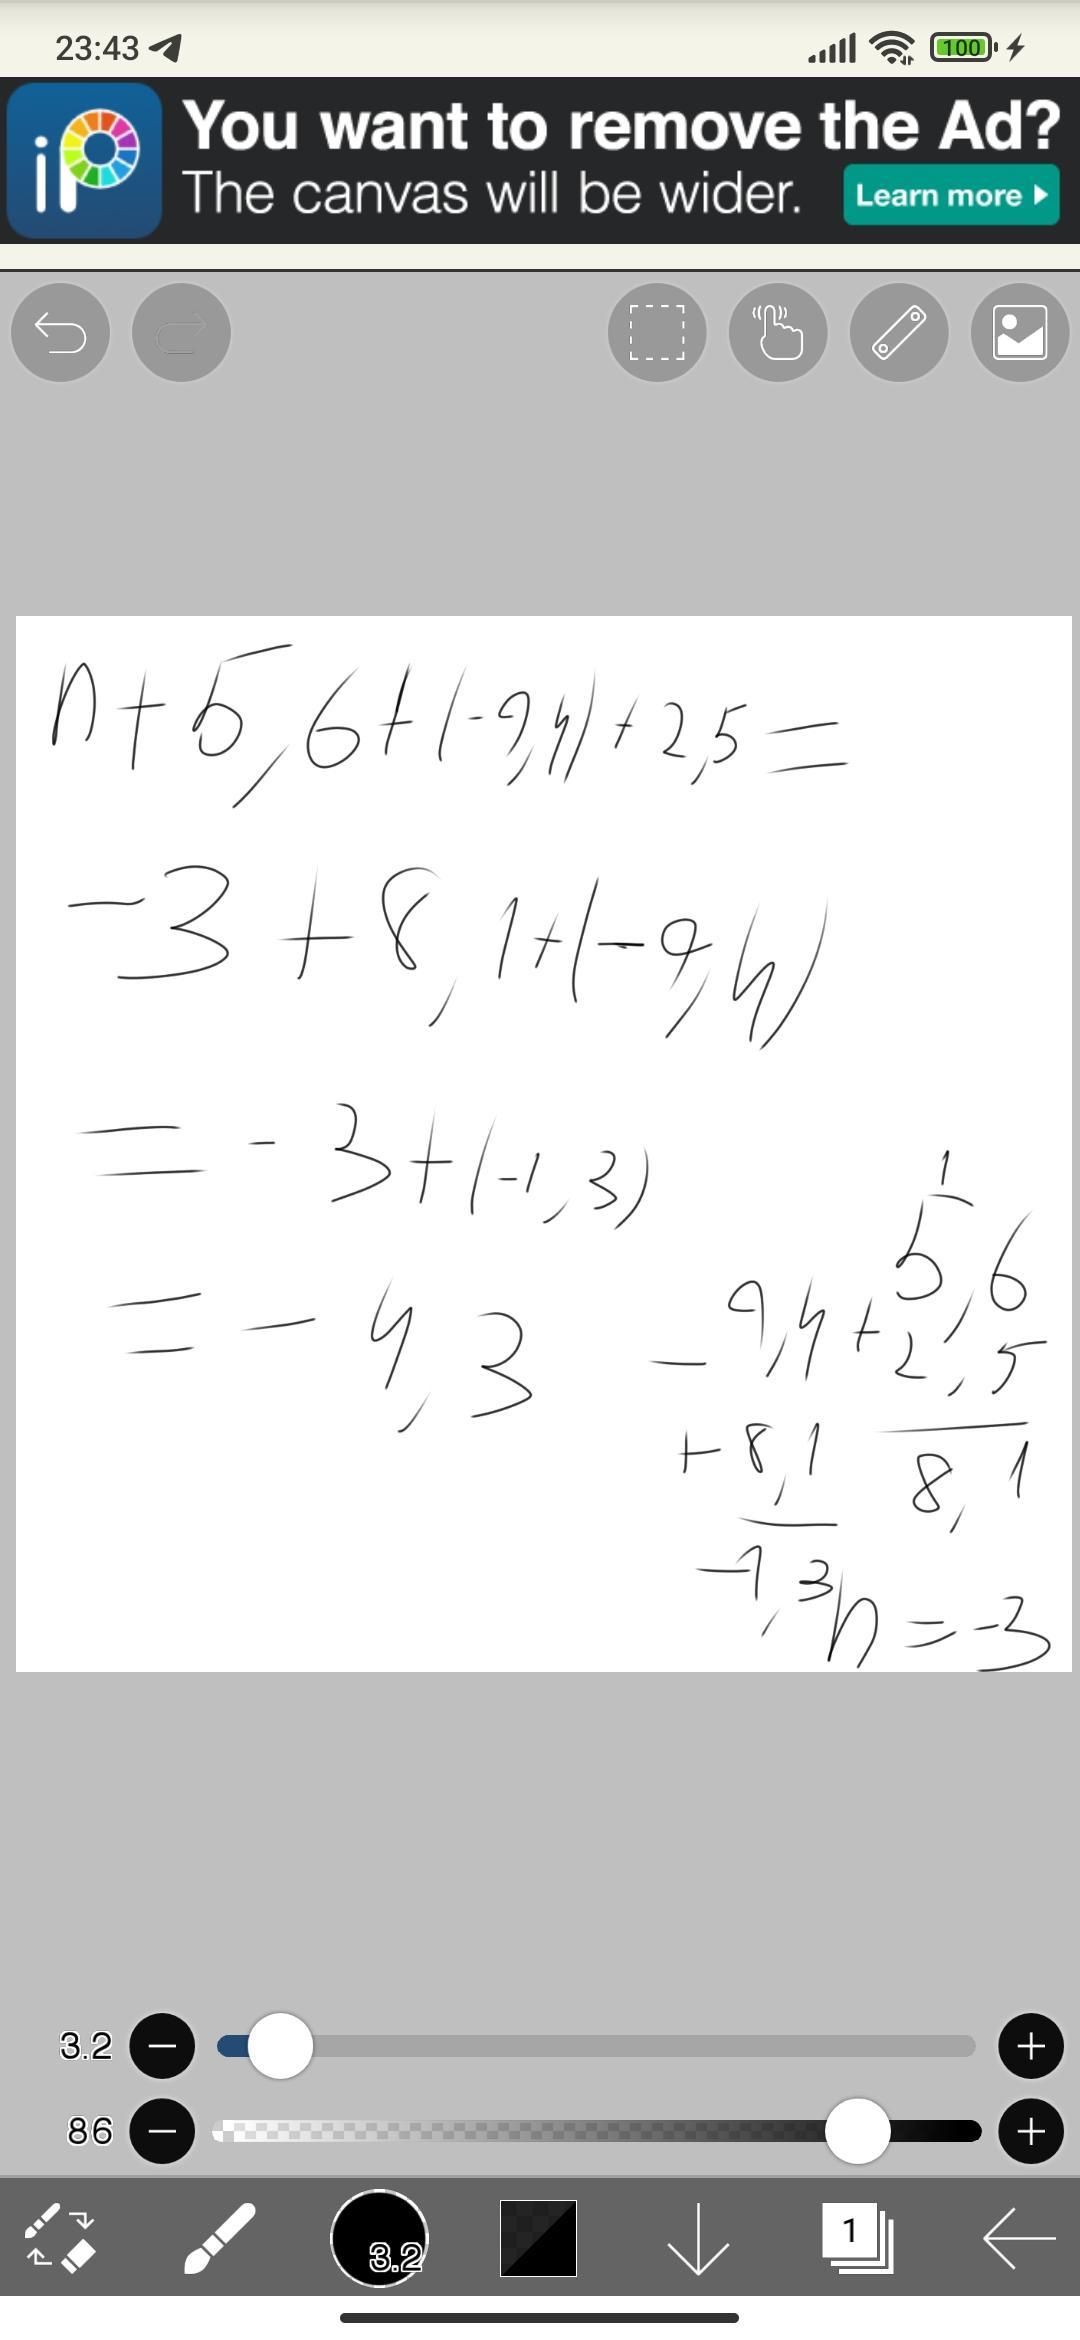 23:43
100
iP
You want to remove the Ad?
The canvas will be wider.
Learn more
n+5,6+(-9,4)+2,5=
-3+8,1+(-9,4)
=-3+(-1,3)
=-4,3
1
5,6
+2,5
8,1
-9,4
+8,1
-1,3
n=-3
3.2
86
3.2
1